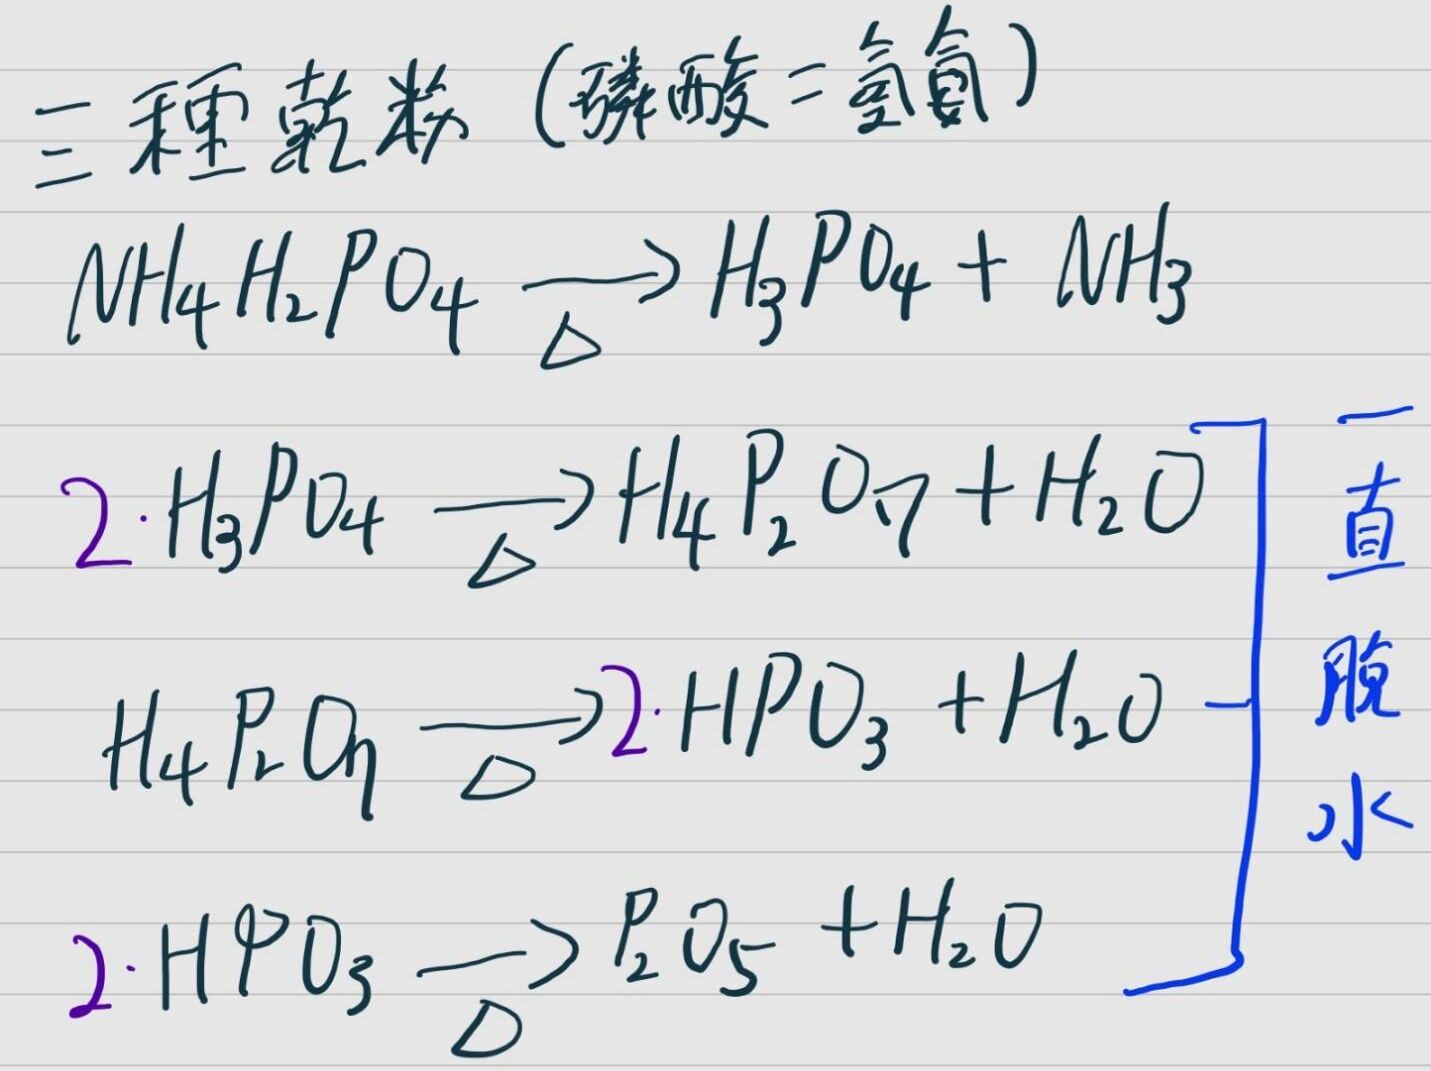 三種乾粉(磷酸二氫氨)
NH₄H₂PO₄ →△ H₃PO₄ + NH₃
2·H₃PO₄ →△ H₄P₂O₇ + H₂O
H₄P₂O₇ →△ 2·HPO₃ + H₂O
2·HPO₃ →△ P₂O₅ + H₂O
一直脫水